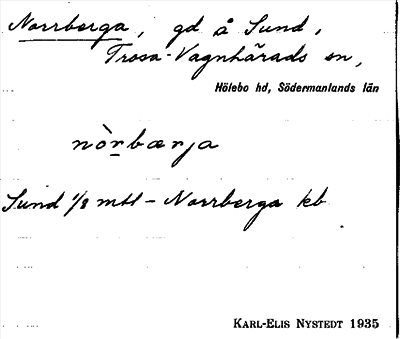 Norrberga, gd å Sund,
Trosa-Vagnhärads sn,
Hölebo hd, Södermanlands län
nòrbærja
Sund 1/8 mtl - Norrberga kb
KARL-ELIS NYSTEDT 1935